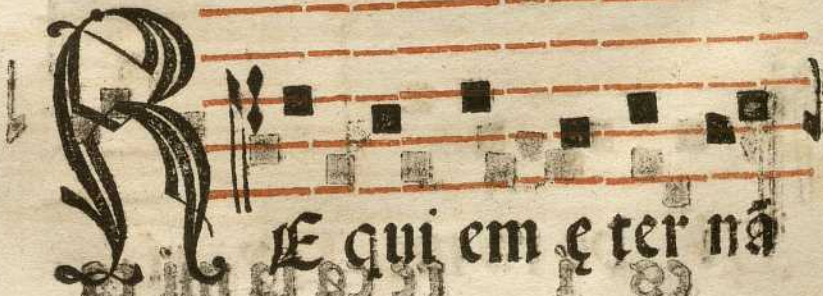 RE qui em ę ter nã